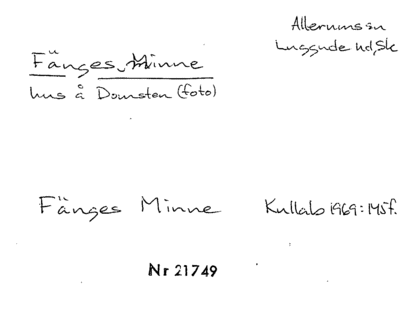 Allerums sn
Luggude hd, Sk
Fänges Minne
hus å Domsten (foto)
Fänges Minne Kullabo 1969: 145f.
Nr 21749